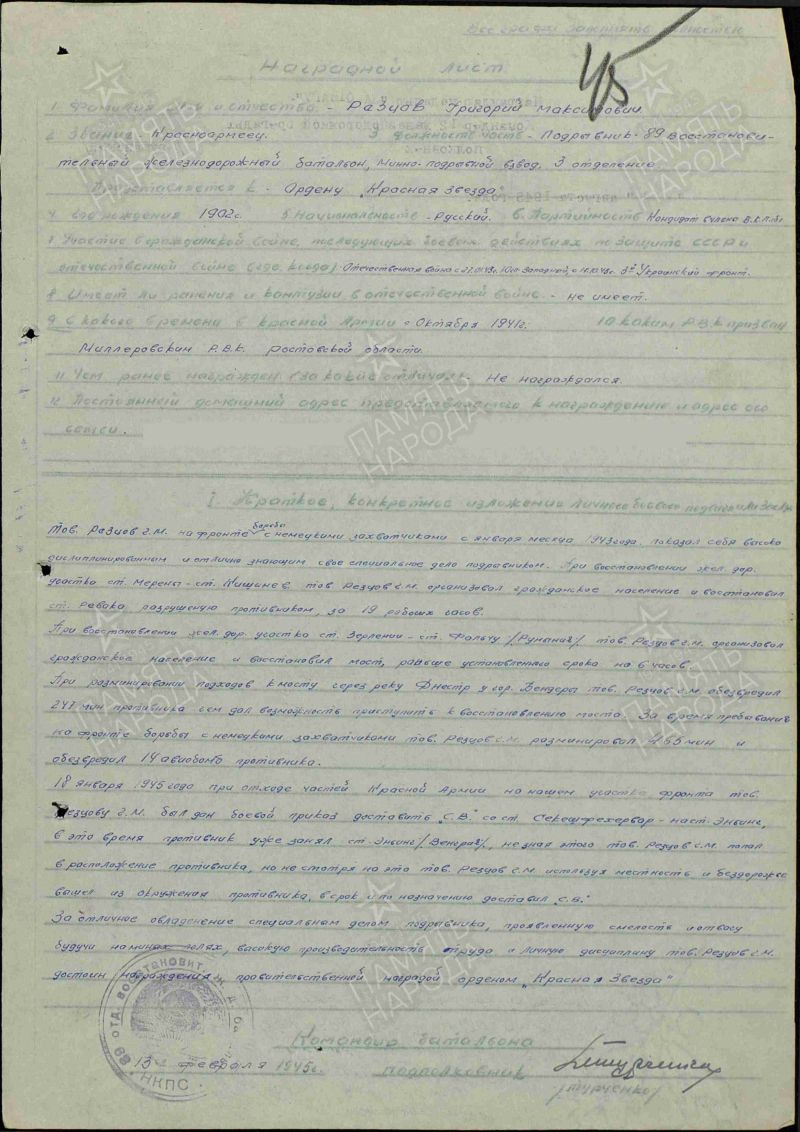 Все графы заполнять полностью
45
Наградной лист
1. Фамилия имя и отчество - Резцов Григорий Максимович
2. Звание - Красноармеец. 3 должность часть - Подрывник - 89 восстанови-
тельный железнодорожный батальон, минно-подрывной взвод, 3 отделение
Представляется к - Ордену "Красная Звезда"
4. год рождения 1902 г. 5. Национальность - Русский. 6. Партийность Кандидат в члены В.К.П.(б)
7 Участие в гражданской войне, последующих боевых действиях по защите СССР и
отечественной войне (где когда) - Отечественная война с 27.01.43г. Юго-Западной, с 3й Украинский фронт.
8. Имеет ли ранения и контузии в отечественной войне - не имеет.
9 С какого времени в красной Армии с Октября 1941г. 10 каким Р.В.К призван
Миллеровским Р.В.К. Ростовской области.
11 Чем ранее награжден (за какие отличая). Не награждался.
12 Постоянный домашний адрес представляемого к награждению и адрес его
семьи.
I. Краткое, конкретное изложение личного боевого подвига или заслуг
Тов. Резцов Г.М. на фронте борьбы с немецкими захватчиками с января месяца 1943 года, показал себя высоко
дисциплинированным и отлично знающим свое специальное дело подрывником. При восстановлении жел. дор.
участка ст. Мерены - ст. Кишинев тов. Резцов Г.М. организовал гражданское население и восстановил
ст. Ревака, разрушеную противником, за 19 рабочих часов.
При восстановлении жел. дор. участка ст. Зерлени - ст. Фальчу /Румыния/ тов. Резцов Г.М. организовал
гражданское население и восстановил мост, раньше установленного срока на 6 часов.
При разминировании подходов к мосту через реку Днестр у гор. Бендеры тов. Резцов Г.М. обезвредил
247 мин противника чем дал возможность приступить к восстановлению моста. За время пребывания
на фронте борьбы с немецкими захватчиками тов. Резцов Г.М. разминировал 455 мин и
обезвредил 14 авиобомб противника.
18 января 1945 года при отходе частей Красной Армии на нашем участке фронта тов.
Резцову Г.М. был дан боевой приказ доставить "С.В." со ст. Секешфехервар - на ст. Эньинг,
в это время противник уже занял ст. Эньинг /Венграя/, не зная этого тов. Резцов Г.М. попал
в расположение противника, но не смотря на это тов. Резцов Г.М. используя местность и бездорожье
вышел из окружения противника, в срок и по назначению доставил "С.В."
За отличное овладение специальным делом подрывника, проявленную смелость и отвагу
будучи на минных полях, высокую производительность труда и личную дисциплину тов. Резцов Г.М.
достоин награждения правительственной наградой орденом "Красная Звезда"
Командир батальона
13 февраля 1945г. подполковник
/Турченко/
89 ОТД. ВОССТАНОВИТ. Ж. Д. НКПС
ПАМЯТЬ НАРОДА